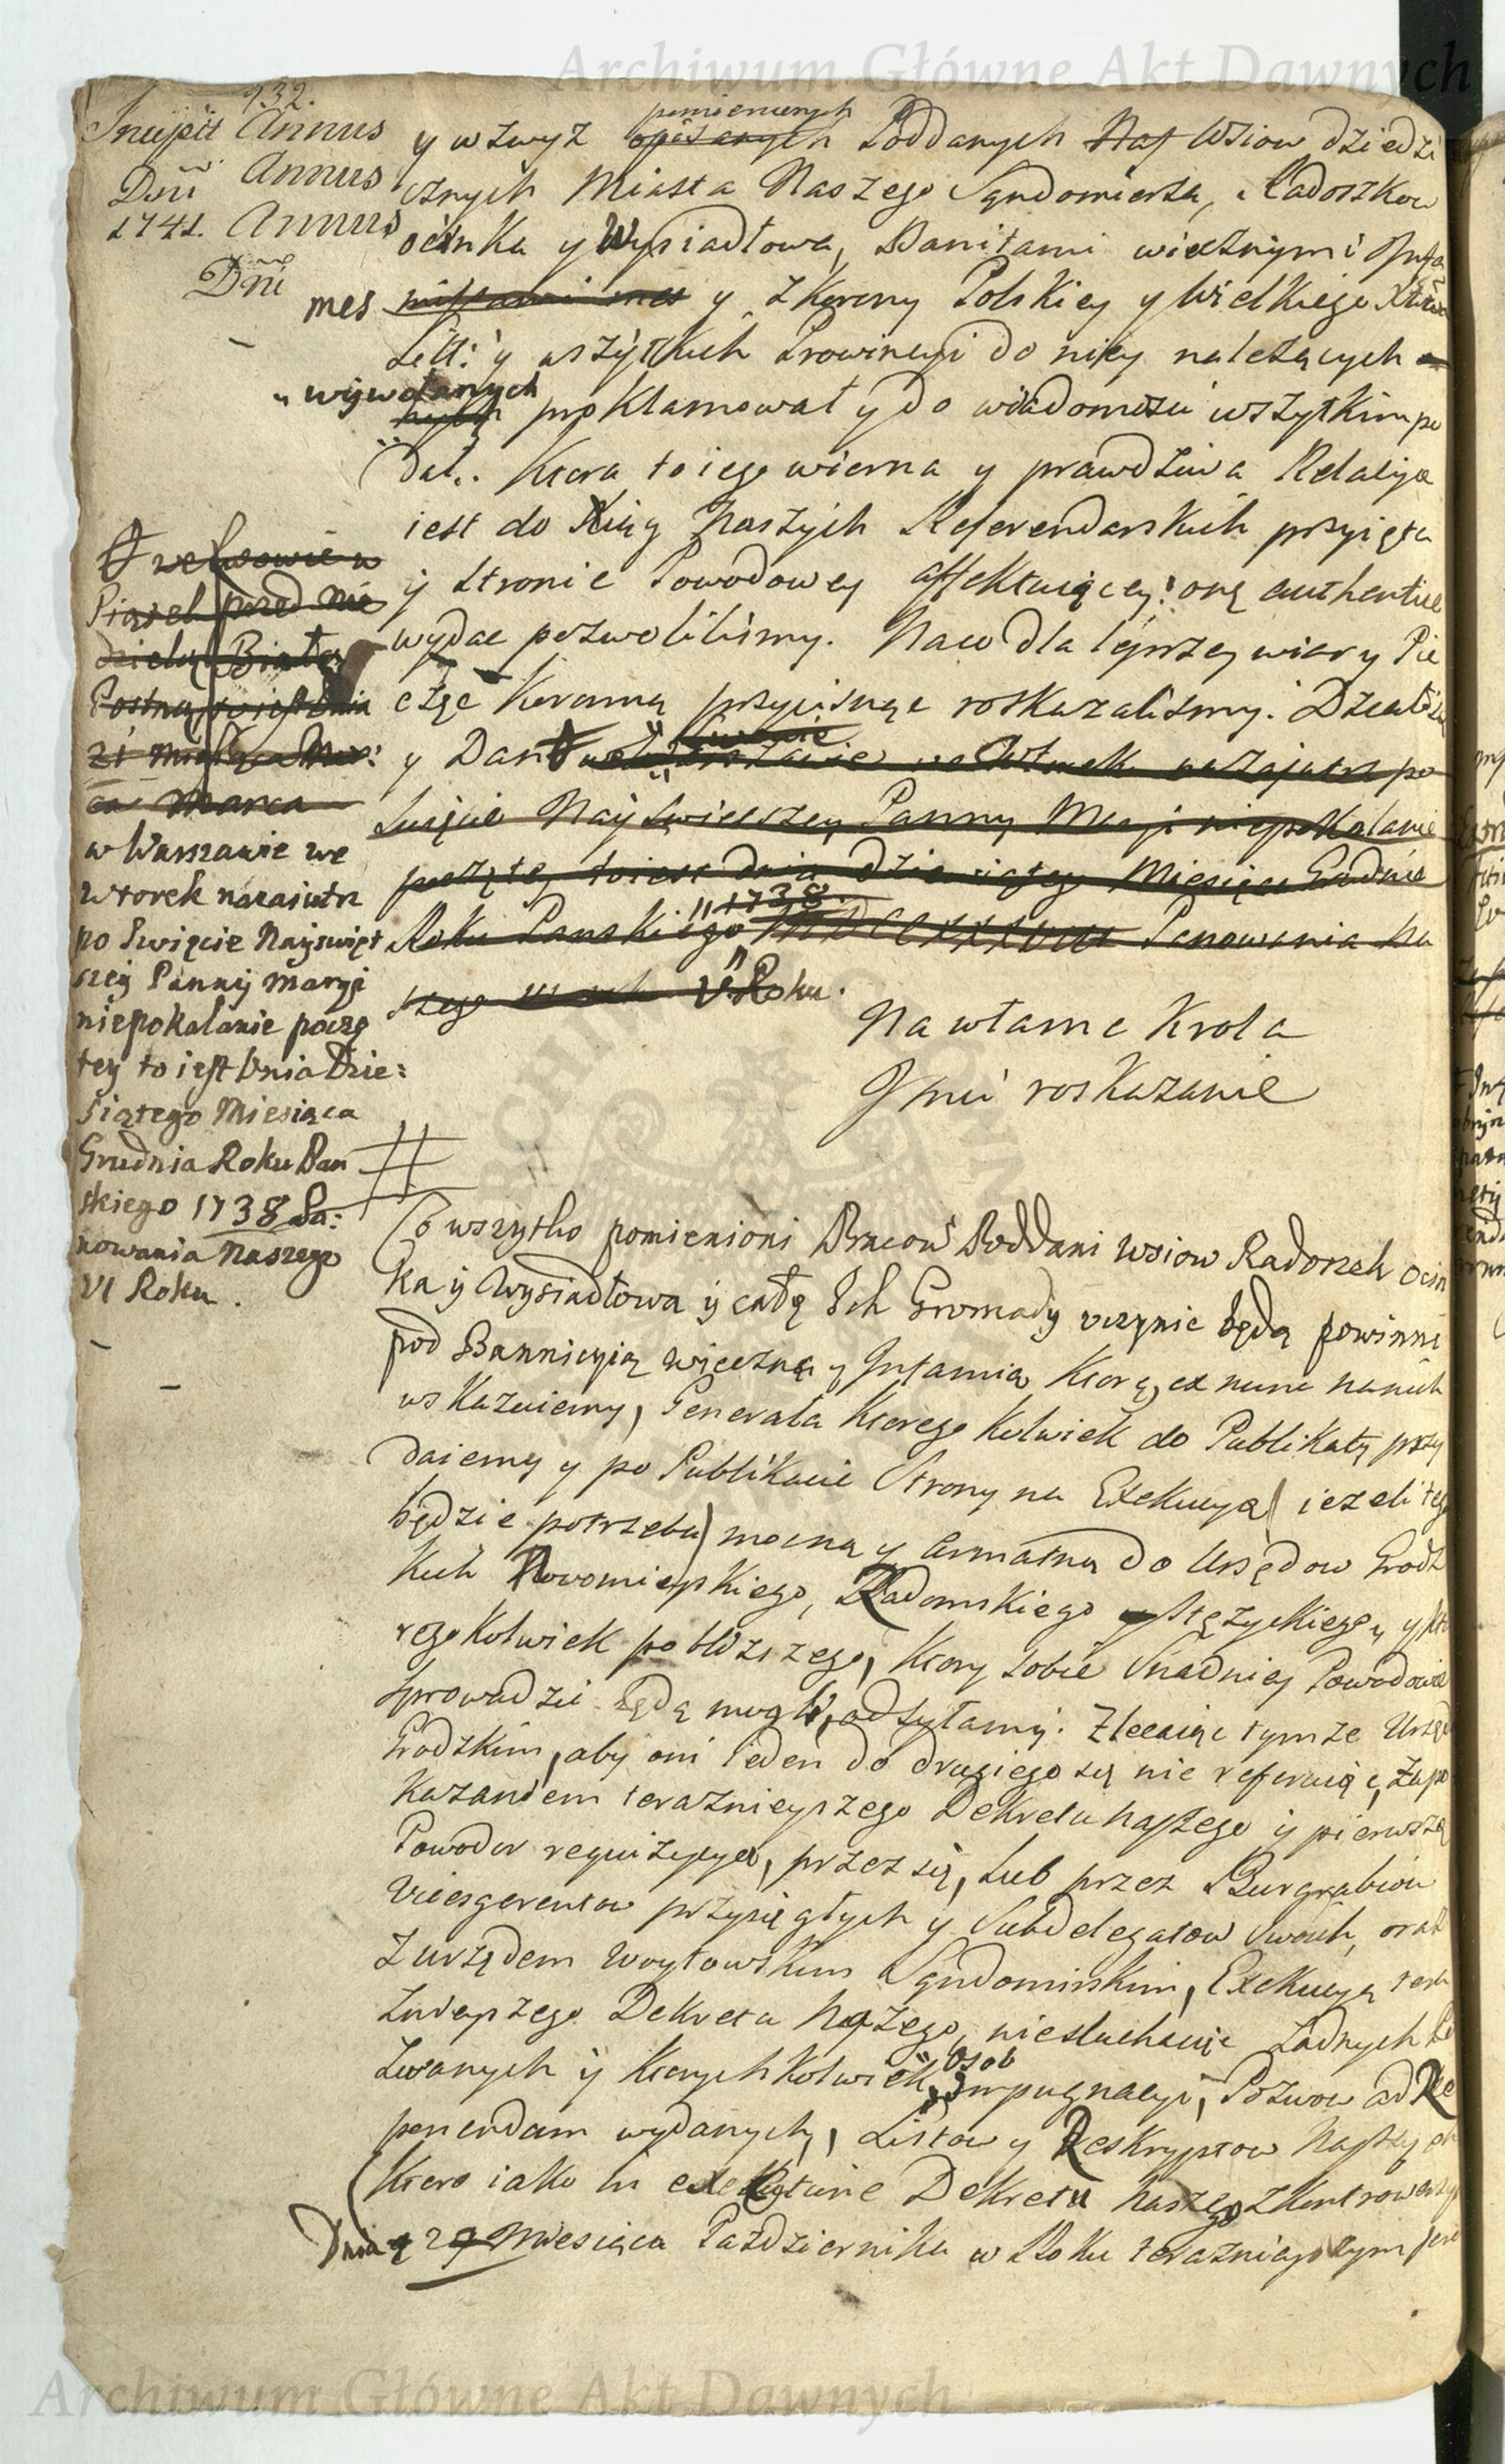 Archiwum Główne Akt Dawnych
932.
Incipit Annus
Dni Annus
1741. Annus
Dni
pomienionych
y wzwyz opisanych Poddanych Nas Wsiow dziedzi
cznych Miasta Naszego Sendomierza, Radoszkow
ocinka y Wysiadłowa, Banitami wiecznymi Infa
mes y z Korony Polskiey y Wielkiego Xtwa
Litt: y wszytkich Prowincyi do niey należących
wywołanych
proklamował y do wiadomości wszytkim po
dał. Ktora to iego wierna y prawdziwa Relacya
iest do Xiąg Naszych Referendarskich przyięta
y stronie Powodowey affektuiącey onę authentice
wydać pozwoliliśmy. Na co dla lepszey wiary Pie
częć Koronną przycisnąć roskazaliśmy. Działo się
y Dan w Warszawie we Wtorek nazajutrz po
Swięcie Nayświętszey Panny Maryi niepokalanie
poczętey to iest dnia dziewiątego Miesiąca Grudnia
1738.
Roku Pańskiego MDCCXXXVIII Panowania na
szego VI Roku.
Na własne Krola
Jmci roskazanie
We Wschowie w
Piątek przed Nie
dzielą Białą
Postną to iest Dnia
21 Miesiąca Mar:
ca Marca
w Warszawie we
Wtorek nazaiutrz
po Swięcie Nayswięt
szey Panny Maryi
niepokalanie poczę
tey to iest Dnia Dzie:
siątego Miesiąca
Grudnia Roku Pań
skiego 1738 Pa:
nowania Naszego
VI Roku.
Co wszytko pomienioni Pracow Poddani Wsiow Radoszek Ocin
ka y Wysiadłowa y całą Ich Gromady uczynić będą powinni
pod Bannicyią wieczną y Infamią Ktorą ex nunc na nich
wskazuiemy, Generała Ktorego Kolwiek do Publikaty przy
daiemy y po Publikacie Strony na Exekucyą ieżeli tego
będzie potrzeba mocną y armatną do Urzędow Grodz
kich Nowomieyskiego, Radomskiego Stężyckiego, y kto
regokolwiek pobliższego, Ktory sobie Snadniey Powodowie
sprowadzić będą mogli, odsyłamy. Zlecaiąc tymże Urzęd
Grodzkim, aby oni ieden do drugiego się nie referuiąc, za po
kazaniem terażnieyszego Dekretu Naszego y pierwszą
Powodow requizycyą, przez się, lub przez Burgrabiow
Vicesgerentow przysięgłych y Subdelegatow Swoich, oraz
z urzędem Woytowskim Sendomirskim, Exekucyą tera
znieyszego Dekretu Naszego, niesłuchaiąc żadnych Po
osob
zwanych y Ktorychkolwiek impugnacyi, Pozwow ad Re
ponendam wydanych, Listow y Reskryptow Naszych
Ktore iako in executione Dekretu Naszego zkontrowersy
Dnia 29 Miesiąca Października w Roku terażnieyszym
Archiwum Główne Akt Dawnych